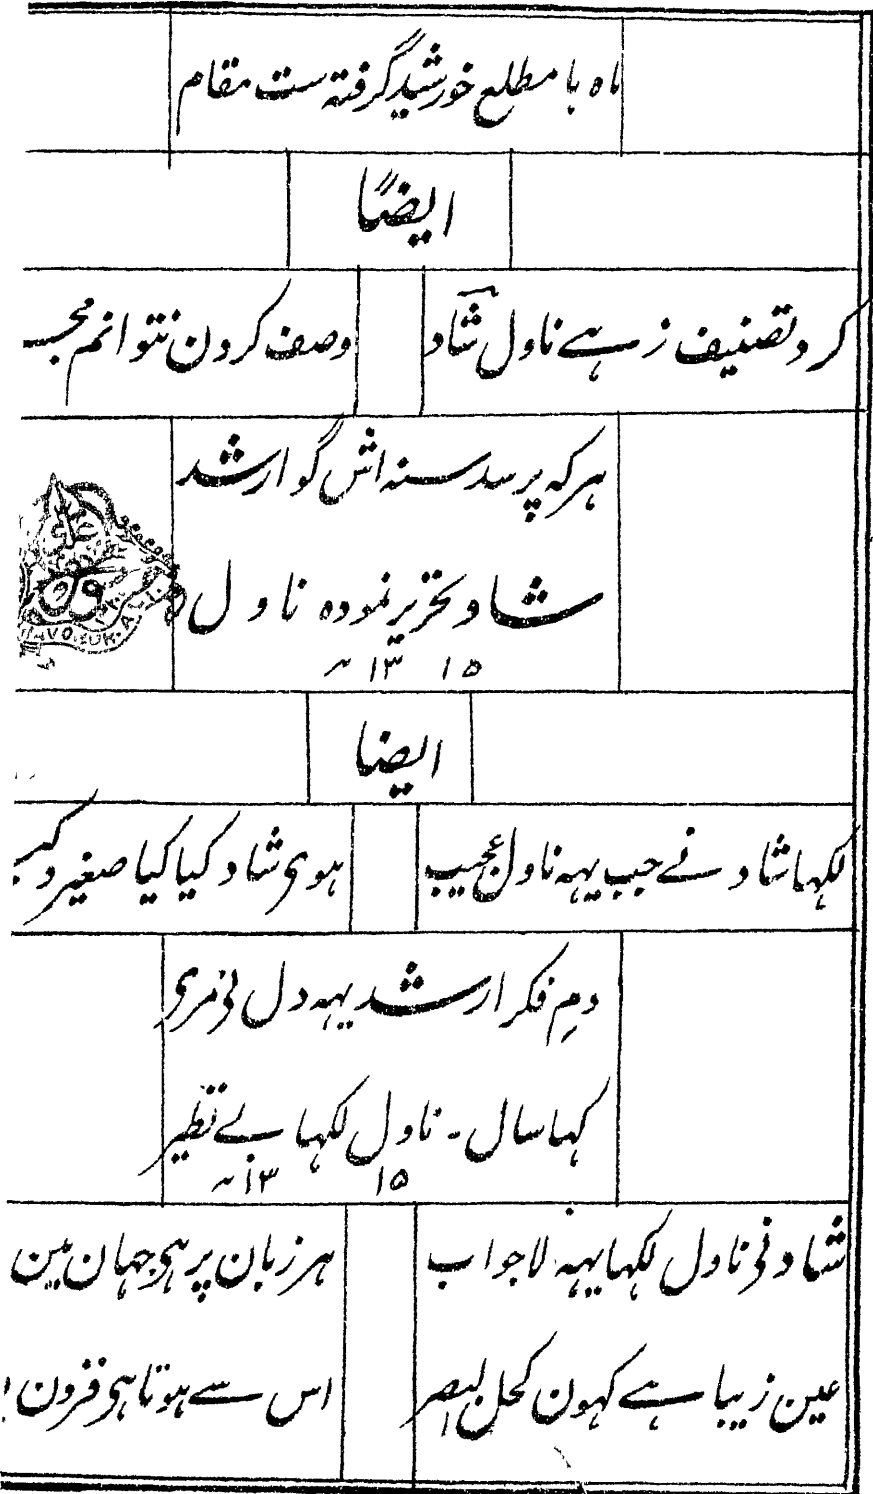 ماه با مطلع خورشید گرفته ست مقام
ایضاً
کرد تصنیف زہے ناول شاد
وصف کردن نتوانم
ہرکہ پرسد سنہ اش گو ارشد
شاد تحریر نمودہ ناول
۱۵ ۱۳
ایضا
لکہا شاد نے جب یہہ ناول عجیب
ہوی شاد کیا کیا صغیر و کبیر
دمِ فکر ارشد یہہ دل نی مری
کہا سال ـ ناول لکہا بے نظیر
۱۵ ۱۳
شاد نی ناول لکہا یہہ لاجواب
ہر زبان پر ہی جہان مین
عین زیبا ہے کہون کحل البصر
اس سے ہوتا ہی فزون